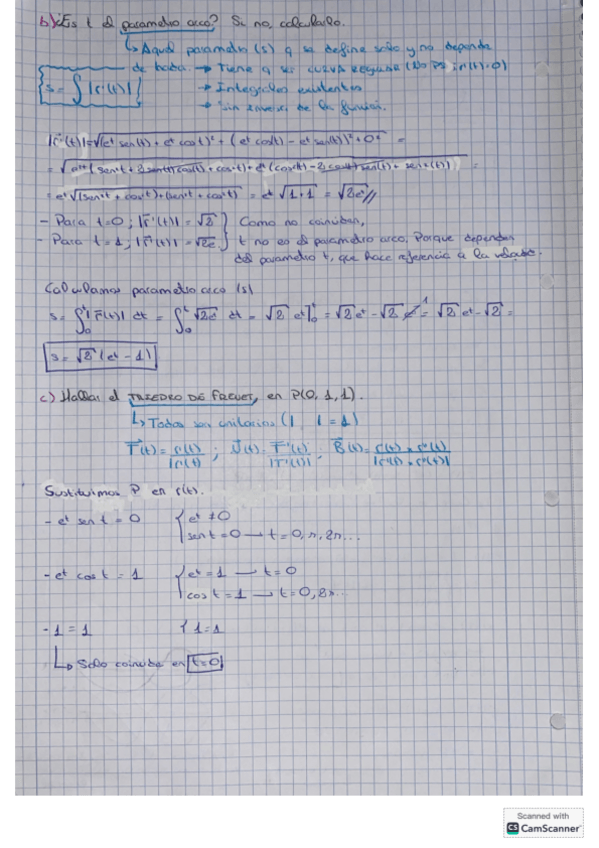 b) ¿Es t el parametro arco? Si no, calcularlo.
↳ Aquel parametro (s) q se define solo y no depende
de nada. → Tiene q ser curva regular (No Ps r'(t)=0)
s = ∫|r'(t)| → Integrales existentes
→ Sin inversa de la función.
|r'(t)| = √(e^t sen(t) + e^t cos t)² + (e^t cos(t) - e^t sen(t))² + 0² =
= √e^2t (sen²t + 2 sen(t) cos(t) + cos²t) + e^2t (cos²(t) - 2 cos(t) sen(t) + sen²(t)) =
= e^t √(sen²t + cos²t) + (sen²t + cos²t) = e^t √1+1 = √2e^t //
- Para t=0; |r'(t)| = √2 } Como no coinciden,
- Para t=1; |r'(t)| = √2e } t no es el parametro arco. Porque depende
del parametro t, que hace referencia a la velocidad.
Calculamos parametro arco (s)
s = ∫₀ᵗ |r'(t)| dt = ∫₀ᵗ √2e^t dt = √2 e^t]₀ᵗ = √2 e^t - √2 e⁰ = √2 e^t - √2 =
s = √2 (e^t - 1)
c) Hallar el TRIEDRO DE FRENET, en P(0, 1, 1).
↳ Todos son unitarios (| | = 1)
T(t) = r'(t)/|r'(t)| ; N(t) = T'(t)/|T'(t)| ; B(t) = r'(t) × r''(t)/|r'(t) × r''(t)|
Sustituimos P en r(t).
- e^t sen t = 0 { e^t ≠ 0
sen t = 0 → t = 0, π, 2π...
- e^t cos t = 1 { e^t = 1 → t = 0
cos t = 1 → t = 0, 2π...
- 1 = 1 { 1 = 1
↳ Solo coincide en t=0
Scanned with
CS CamScanner